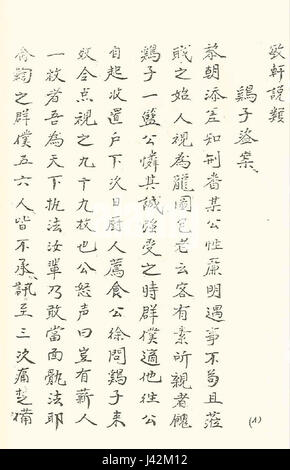 致軒説類
鷄子盜案
黎朝添差知刑番某公性廉明遇事不苟且蒞
職之始人視為龍圖包老云客有素所親者餽
鷄子一籃公憐其誠強受之時群僕適他往公
自起收置戶下次日厨人薦食公徐問鷄子来
奴令点視之九十九枚也公怒声曰豈有蘄人
一枚者吾為天下执法汝輩乃敢當面骫法耶
命鞫之群僕五六人皆不承訊至三次痛楚備
(1)
alamy - M42112